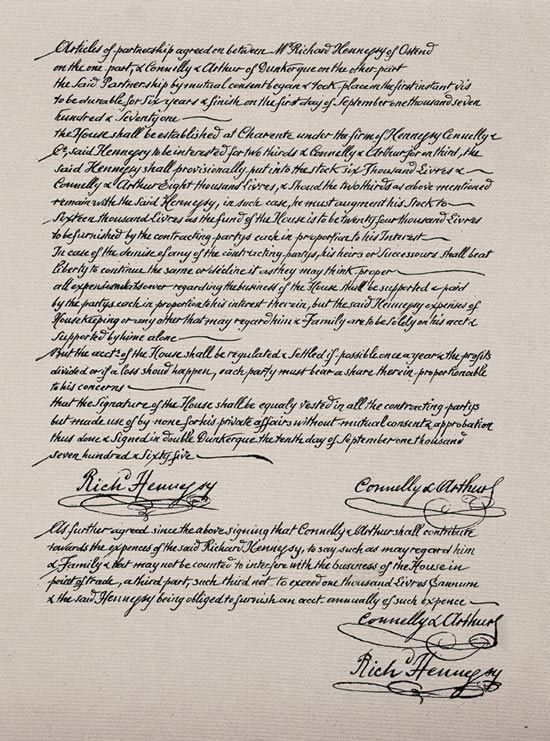 Articles of partnership agreed on between Mr Richard Hennessy of Ostend
on the one part, & Connelly & Arthur of Dunkerque on the other part
the Said Partnership by mutual consent began & took place on the first instant vis
to be durable for Six years & finish on the first day of September one thousand seven
hundred & Seventy one
the House shall be established at Charente under the firm of Hennessy Connelly &
Co, said Hennessy to be interested for two thirds & Connelly & Arthur for on third, the
said Hennessy shall provisionally put into the stock six Thousand Livres &
Connelly & Arthur Eight thousand Livres, & Shoud the two thirds as above mentioned
remain with the Said Hennessy, in such case, he must augment his Stock to
Sixteen thousand Livres as the fund of the House is to be twenty four thousand Livres
to be furnished by the contracting partys each in proportion to his Interest
In case of the demise of any of the contracting partys, his heirs or Successours shall be at
liberty to continue the same or decline it as they may think proper
all expences whatsower regarding the business of the House shall be supported & paid
by the partys each in proportion to his interest therein, but the said Hennessy expenses of
Housekeeping or any other that may regard him & Family are to be Solely on his acct &
Supported by hime alone
But the accts of the House shall be regulated & Settled if possible once a year & the profits
divided or if a loss shoud happen, each party must bear a share therein proportionable
to his concerns
that the Signature of the House shall be equaly vested in all the contracting partys
but made use of by none for his private affairs without mutual consent & approbation
thus done & Signed in double Dunkerque the tenth day of September one thousand
seven hundred & Sixty five
Richd Hennessy Connelly & Arthur
As further agreed since the above signing that Connelly & Arthur shall contribute
towards the expences of the said Richard Hennessy, to say such as may regard him
& Family & that may not be counted to interfere with the business of the House in
point of trade, a third part, such third not to exceed one thousand Livres annum
& the said Hennessy being obliged to furnish an acct annually of such expence
Connelly & Arthur
Richd Hennessy